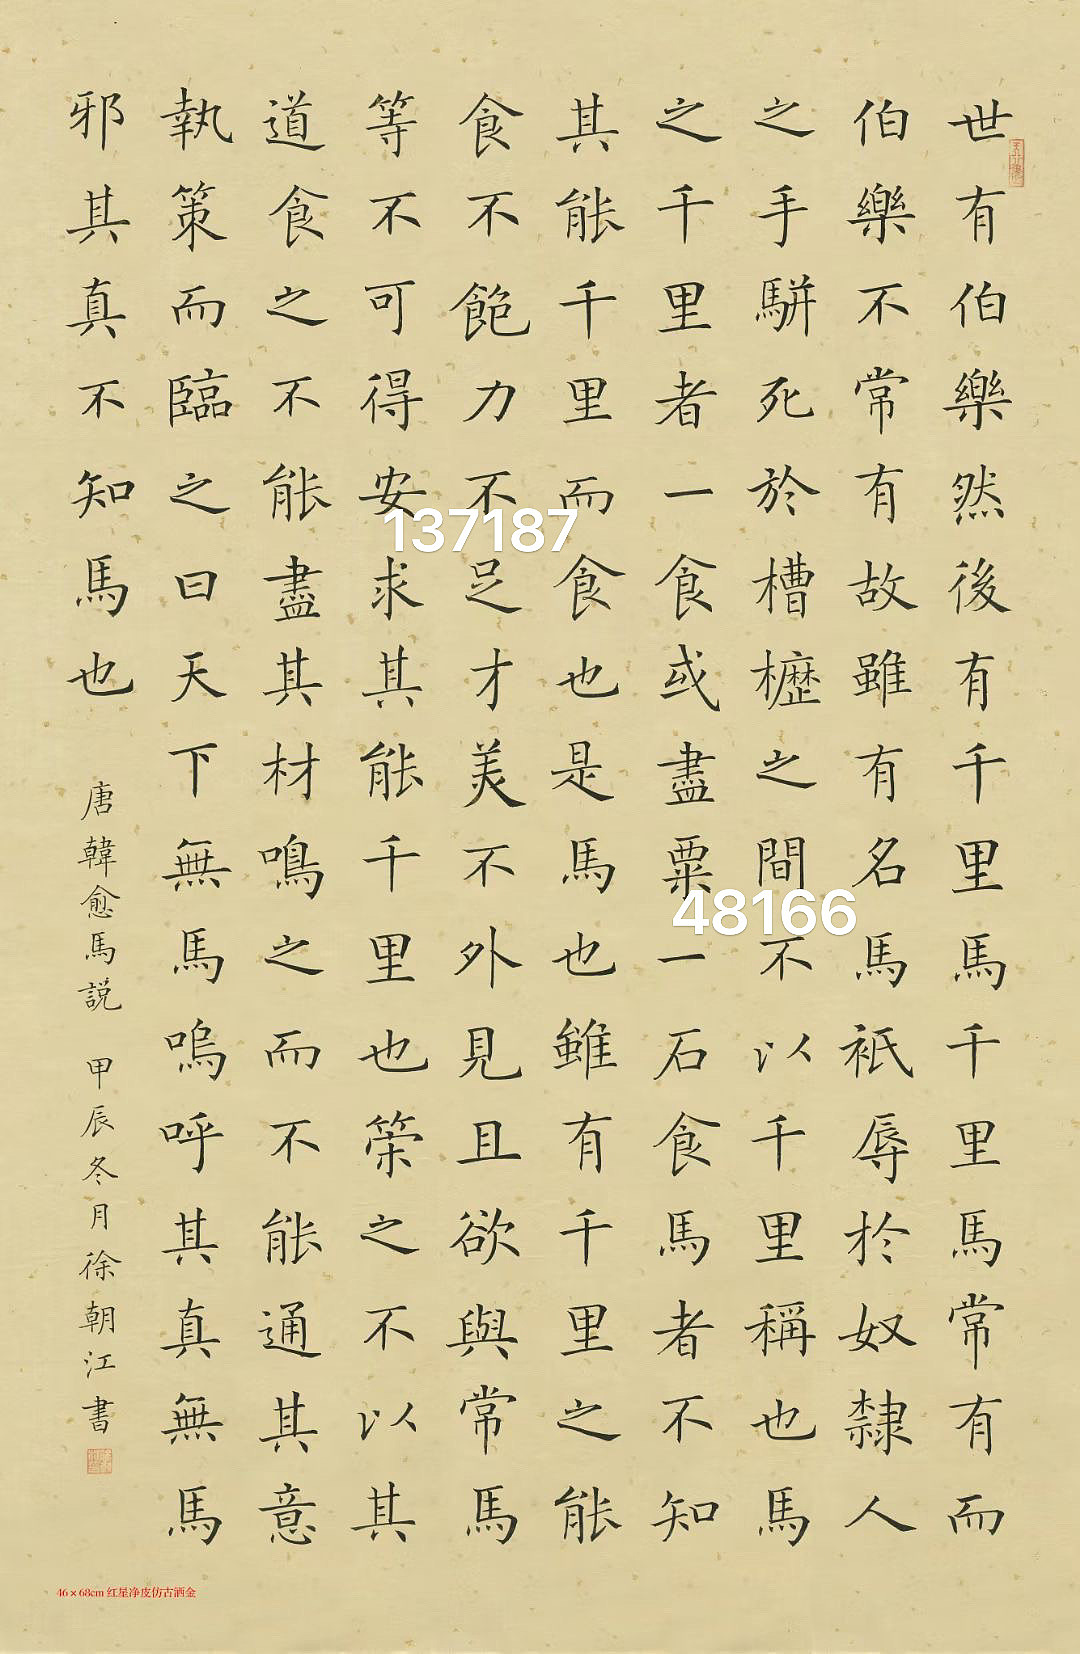 世有伯樂然後有千里馬千里馬常有而
伯樂不常有故雖有名馬祇辱於奴隸人
之手駢死於槽櫪之間不以千里稱也馬
之千里者一食或盡粟一石食馬者不知
其能千里而食也是馬也雖有千里之能
食不飽力不足才美不外見且欲與常馬
等不可得安求其能千里也策之不以其
道食之不能盡其材鳴之而不能通其意
執策而臨之曰天下無馬嗚呼其真無馬
邪其真不知馬也
唐韓愈馬説 甲辰冬月徐朝江書
137187
48166
46×68cm 红星净皮仿古洒金